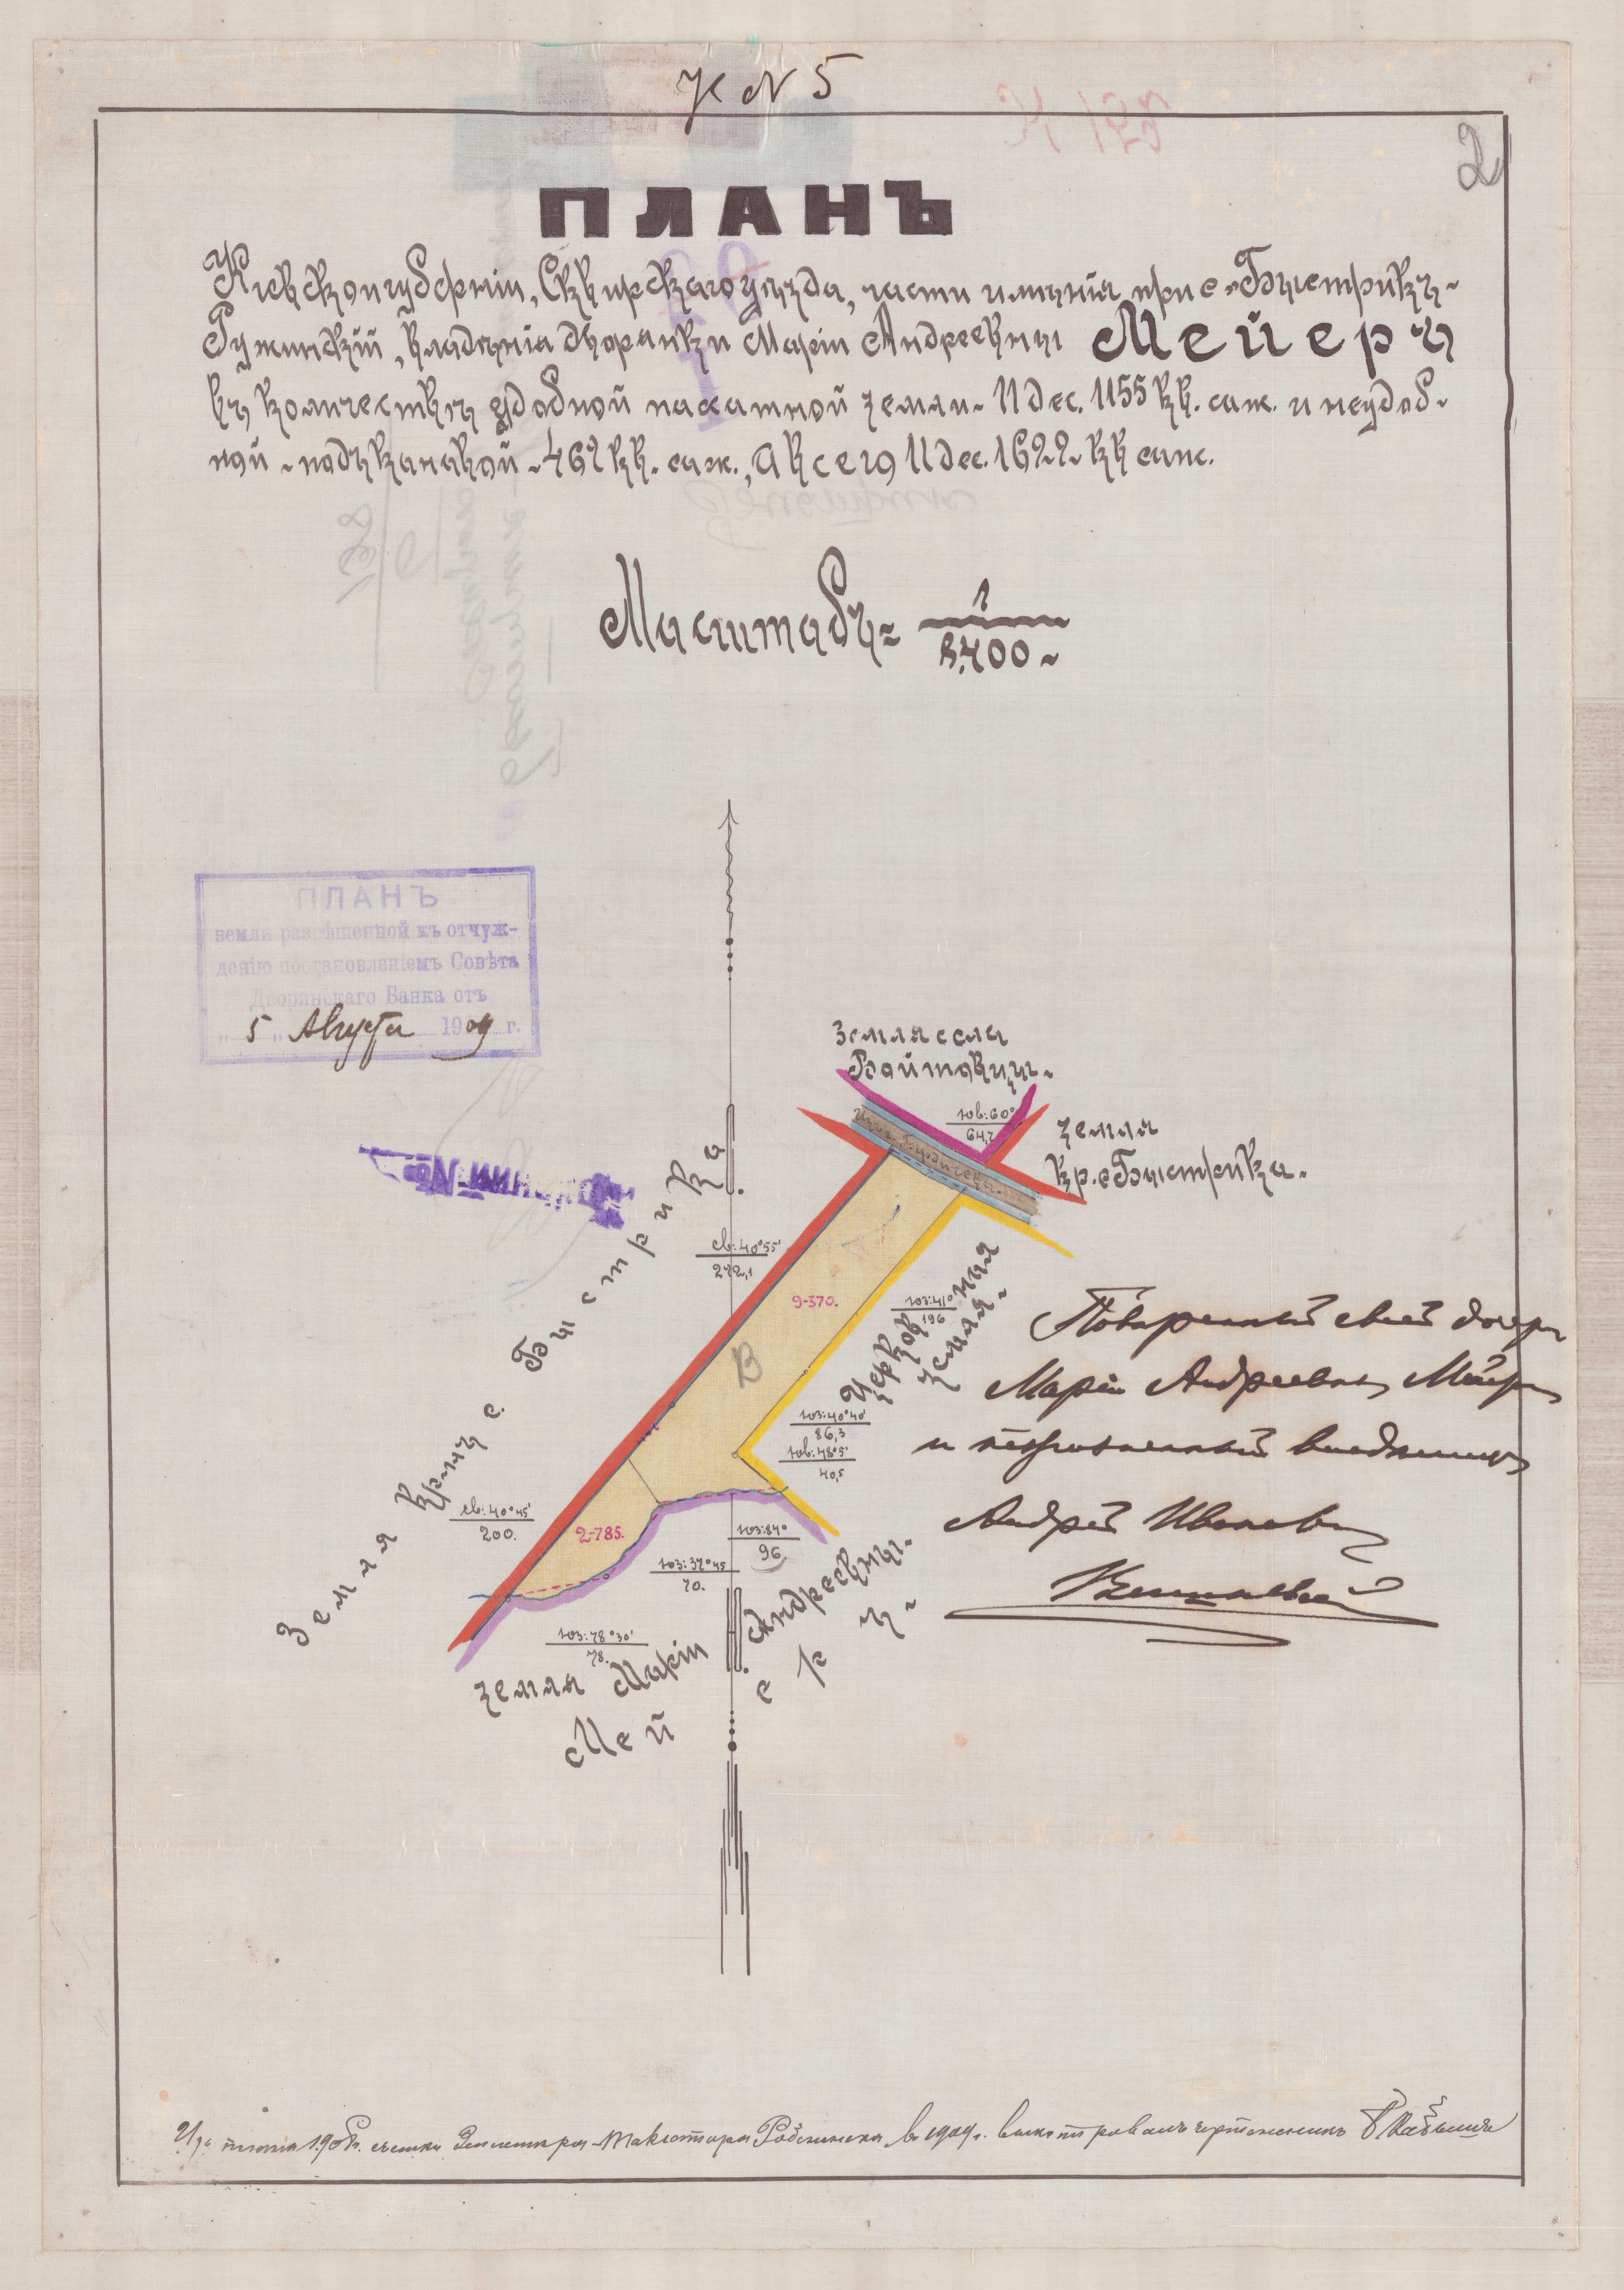 К № 5
2
ПЛАНЪ
Кіевской губерніи, Сквирскаго уѣзда, части имѣнія при с. Быстрикъ-
Ружинскій, владѣнія дворянки Маріи Андреевны Мейеръ
въ количествѣ удобной пахатной земли 11 дес. 1155 кв. саж. и неудоб-
ной подъ канавой 467 кв. саж., а всего 11 дес. 1622 кв саж.
Масштабъ = 1
8,400
ПЛАНЪ
земли разрѣшенной къ отчуж-
денію постановленіемъ Совѣта
Дворянскаго Банка отъ
„5„ Августа 1909 г.
Земля села
Войтовцы.
юв:60°
64,2
земля
кр. с. Быстрика.
Земля кр-нъ с. Быстрика
св:40°55'
272,1
9-370.
юз:41°
196
Церковная
земля.
В
юз:40°40'
86,3
юв:48°5'
40,5
св:40°45'
200.
2-785.
юз:84°
96
юз:37°45
70.
юз:78°30'
78.
земля Маріи Андреевны
Мейеръ
Повѣренный своей дочери
Маріи Андреевны Мейеръ
и
Андрей Ивановъ
Изъ плана 190 съемки Землемѣра-Таксатора въ 1909 г. чертежникъ